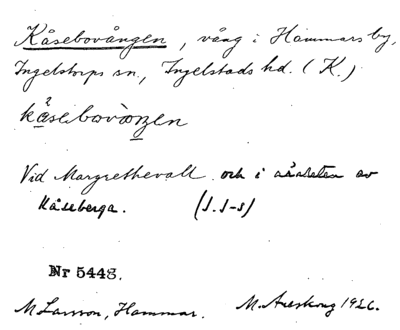 Kåsebovången, vång i Hammars by,
Ingelstorps sn., Ingelstads hd. (K.)
kåsebovåŋen
Vid Margrethevall och i av
Kåseberga. (J. J-s)
Nr 5448.
M Larsson, Hammar. M. Areskoug 1926.